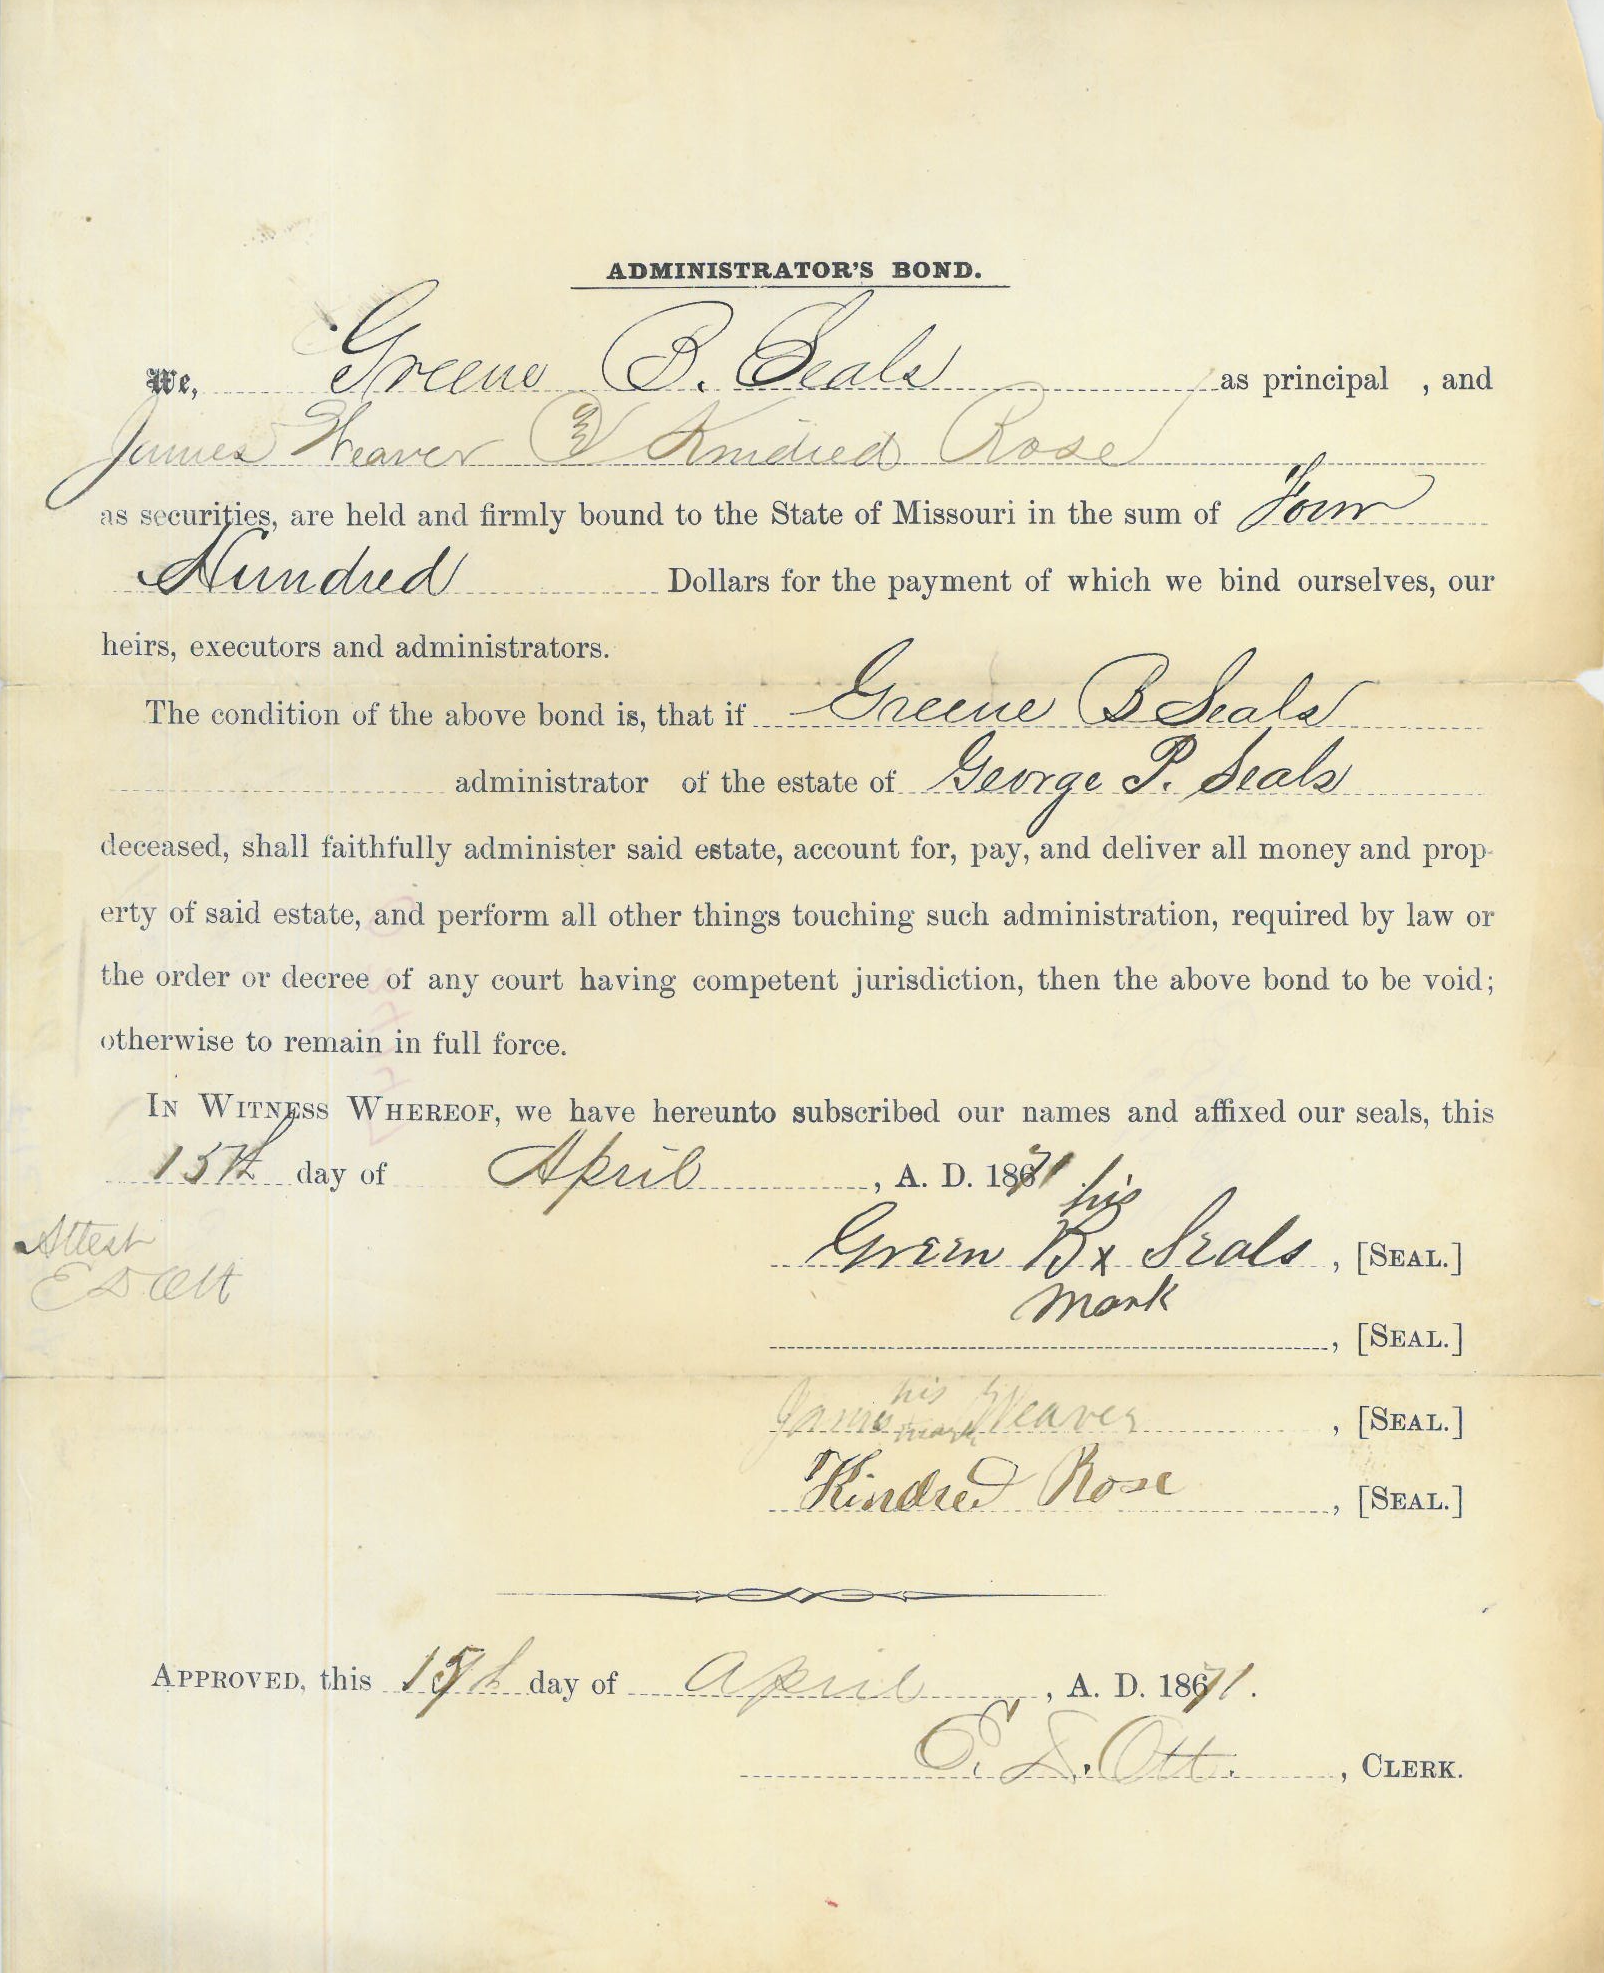 ADMINISTRATOR'S BOND.
We, Greene B. Seals as principal , and
James Weaver & Kindred Rose
as securities, are held and firmly bound to the State of Missouri in the sum of Four
Hundred Dollars for the payment of which we bind ourselves, our
heirs, executors and administrators.
The condition of the above bond is, that if Greene B Seals
administrator of the estate of George P. Seals
deceased, shall faithfully administer said estate, account for, pay, and deliver all money and prop-
erty of said estate, and perform all other things touching such administration, required by law or
the order or decree of any court having competent jurisdiction, then the above bond to be void;
otherwise to remain in full force.
IN WITNESS WHEREOF, we have hereunto subscribed our names and affixed our seals, this
15th day of April , A. D. 1871
his
Green B x Seals , [SEAL.]
mark
Attest
E D. Ott
, [SEAL.]
his
James Weaver , [SEAL.]
mark
Kindred Rose , [SEAL.]
APPROVED, this 15th day of April , A. D. 1871.
E. D. Ott. , CLERK.